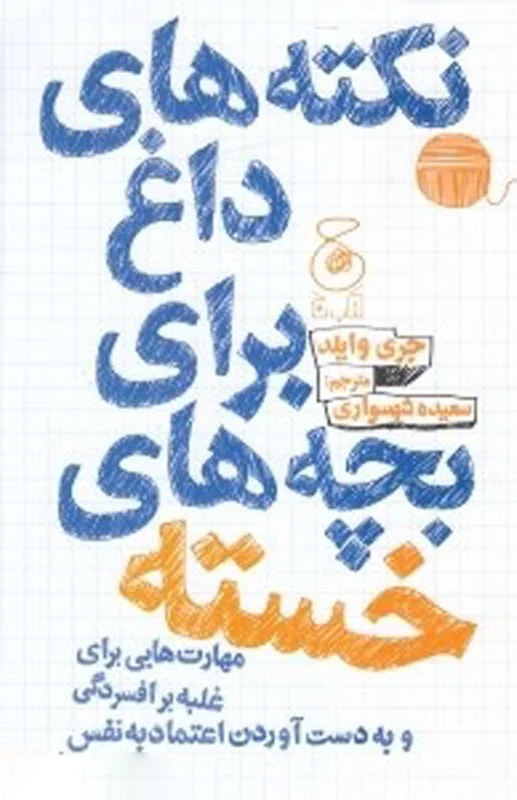 نکته‌های
داغ
برای
بچه‌های
خسته
جری وایلد
مترجم:
سعیده شهسواری
مهارت‌هایی برای
غلبه بر افسردگی
و به دست آوردن اعتماد به نفس